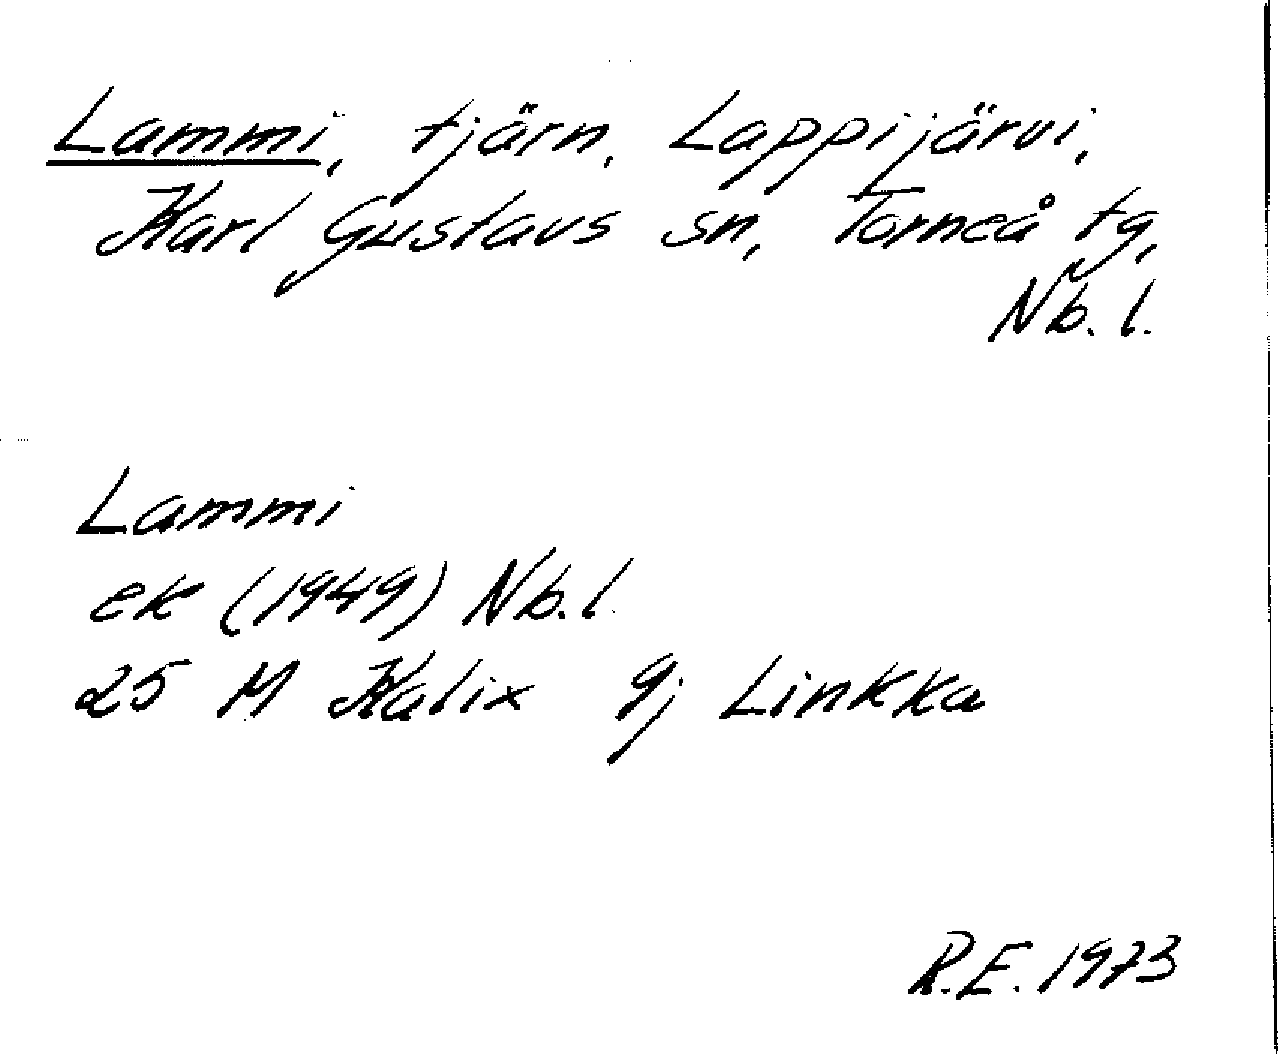 Lammi, tjärn, Lappijärvi,
Karl Gustavs sn, Torneå tg,
Nb. l.
Lammi
ek (1949) Nb. l.
25 M Kalix 9j Linkka
R.E. 1973